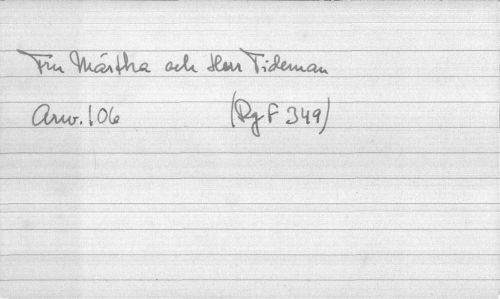 Fru Märtha och Herr Tideman
Arw. 106 (Rg F 349)